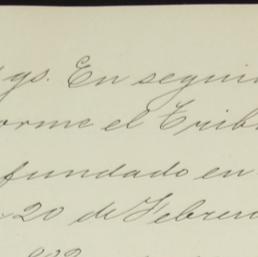 gs. En segui
orme el Trib
fundado en
20 de Febrero